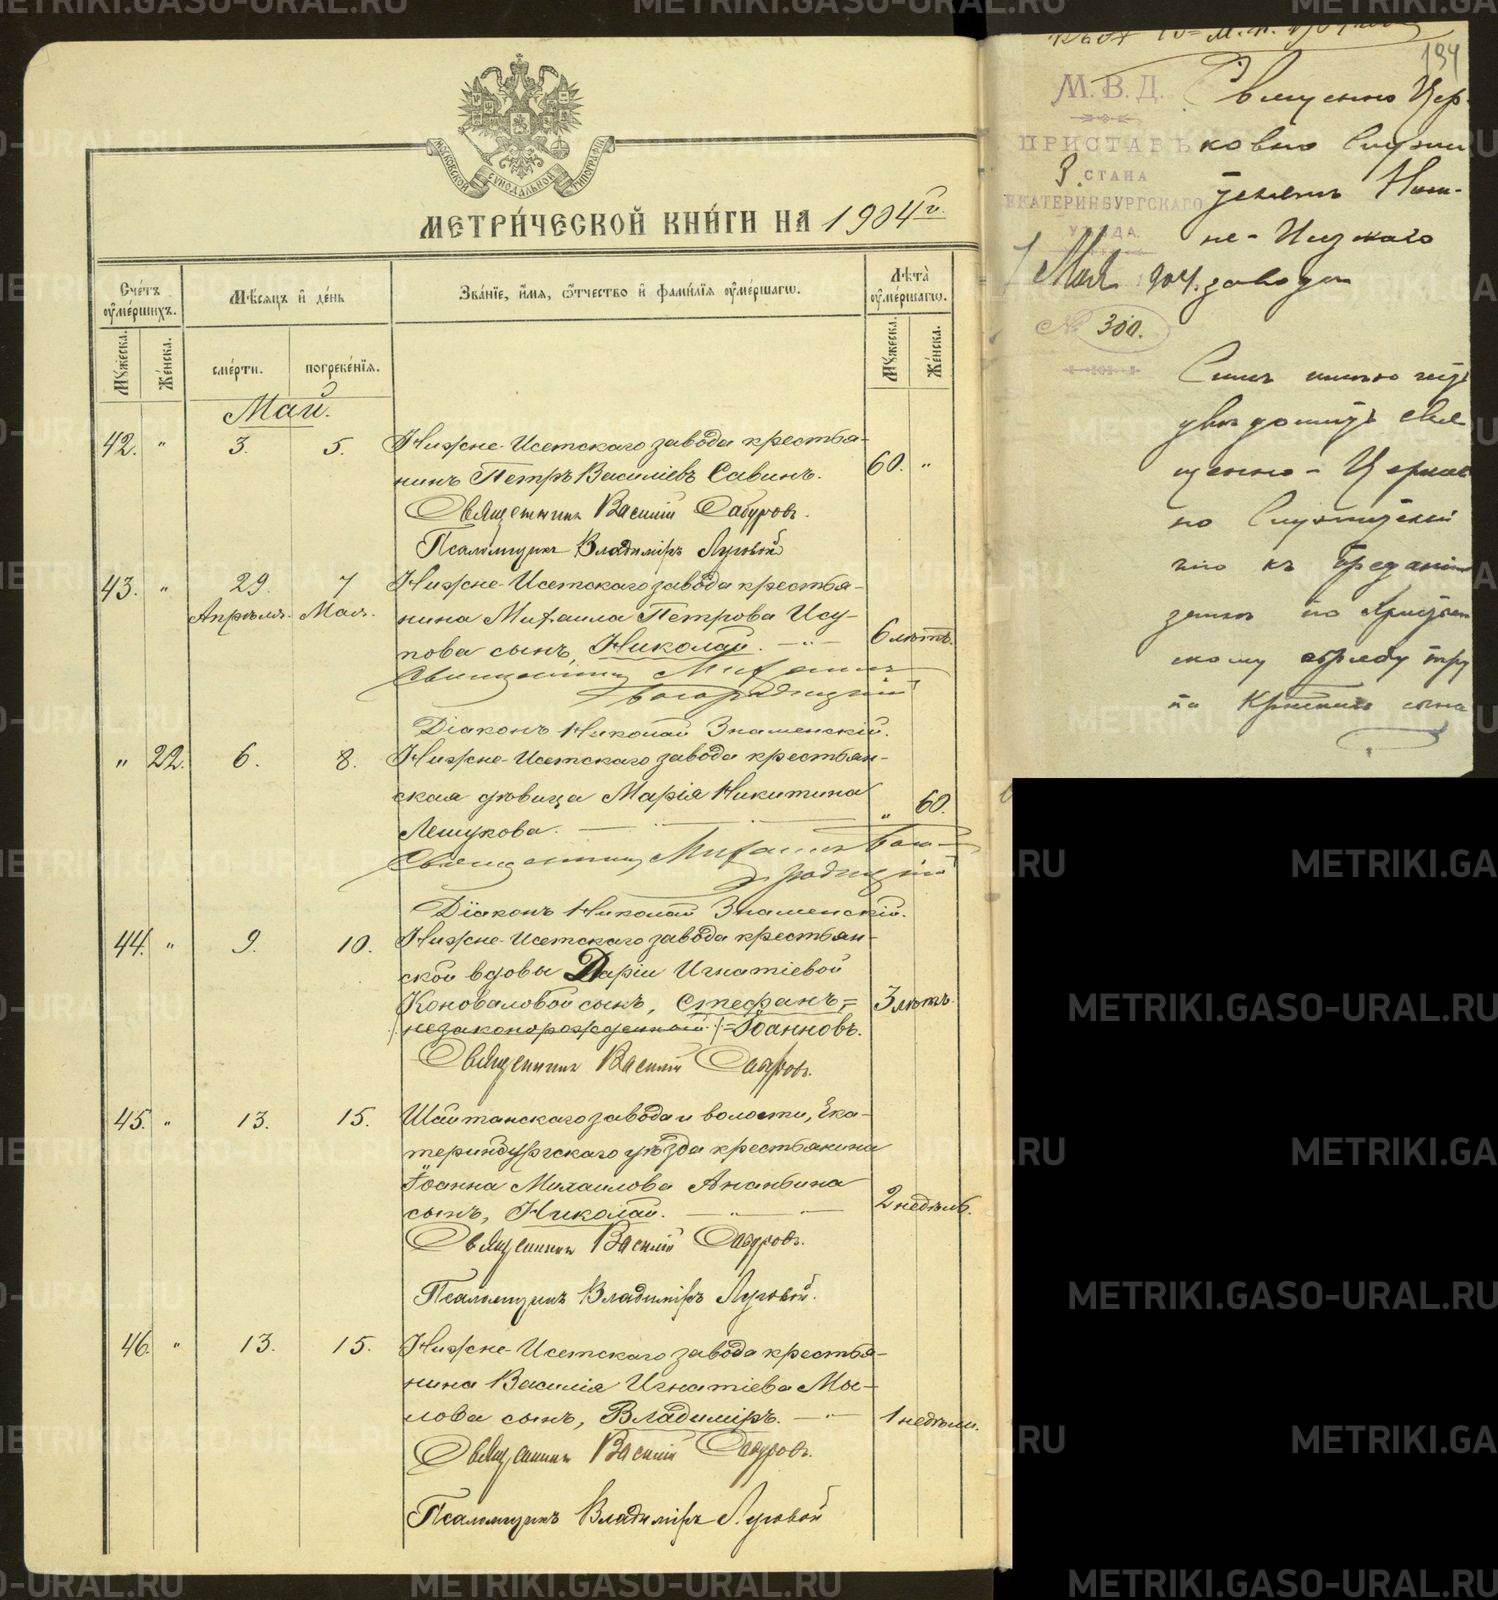 МОСКОВСКОЙ СѴНОДАЛЬНОЙ ТИПОГРАФІИ
МЕТРИ́ЧЕСКОЙ КНИ́ГИ НА 1904 г.
Сче́тъ ᲂу҆ме́ршихъ.
Мꙋ́жеска.
Же́нска.
Мѣ́сяцъ и҆ де́нь
сме́рти.
погребе́нїя.
Зва́нїе, и҆́мя, ѻ҆́тчество и҆ фами́лїя ᲂу҆ме́ршагѡ.
Лѣта̀ ᲂу҆ме́ршагѡ.
Мꙋ́жеска.
Же́нска.
Май.
42. " 3. 5. Нижне-Исетскаго завода крестья-
нинъ Петръ Василіевъ Савинъ. 60. "
Священникъ Василій Сабуровъ.
Псаломщикъ Владиміръ Луговой
43. " 29. 7 Нижне-Исетскаго завода крестья-
Апрѣля. Мая. нина Михаила Петрова Ису-
пова сынъ, Николай. 6 лѣтъ.
Священникъ Михаилъ
Богородицкій
Діаконъ Николай Знаменскій.
" 22. 6. 8. Нижне-Исетскаго завода крестьян-
ская дѣвица Марія Никитина " 60.
Лешукова.
Священникъ Михаилъ Бого-
родицкій
Діаконъ Николай Знаменскій.
44. " 9. 10. Нижне-Исетскаго завода крестьян-
ской вдовы Даріи Игнатіевой
Коноваловой сынъ, Стефанъ= 3 лѣтъ.
/незаконорожденный/=Іоанновъ.
Священникъ Василій Сабуровъ.
45. " 13. 15. Шайтанскаго завода и волости, Ека-
теринбургскаго уѣзда крестьянина
Іоанна Михаилова Ананьина
сынъ, Николай. 2 недѣль.
Священникъ Василій Сабуровъ.
Псаломщикъ Владиміръ Луговой.
46. " 13. 15. Нижне-Исетскаго завода крестья-
нина Василія Игнатіева Мы-
лова сынъ, Владиміръ. 1 недѣли.
Священникъ Василій Сабуровъ.
Псаломщикъ Владиміръ Луговой
194
М.В.Д.
ПРИСТАВЪ
3. СТАНА
ЕКАТЕРИНБУРГСКАГО
УѢЗДА.
Мая 1904.
№ 300.
Священно Цер-
ковно Служи
телямъ Ниж-
не-Исетскаго
завода
Симъ имѣю честь
увѣдомить Свя
щенно-Церков
но Служителей
что къ преданію
землѣ по Христіан
скому обряду тру
па Крестнаго сына
METRIKI.GASO-URAL.RU